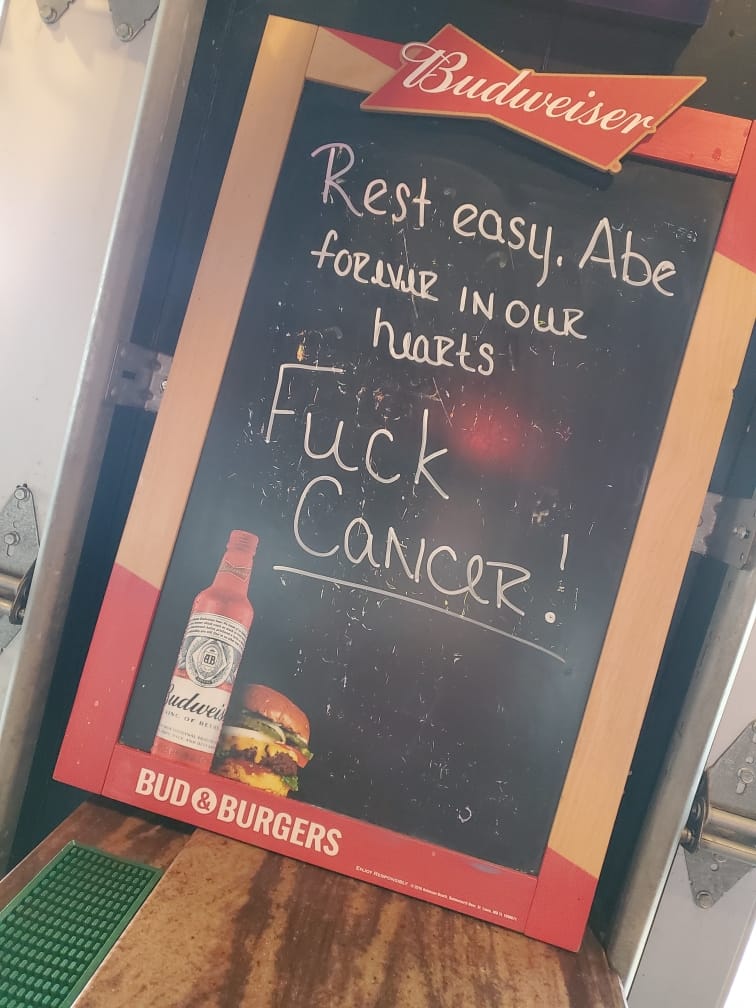 Budweiser
Rest easy. Abe
forever in our
hearts
Fuck
Cancer!
Budweis
KING OF BEE
BUD & BURGERS
ENJOY RESPONSIBLY